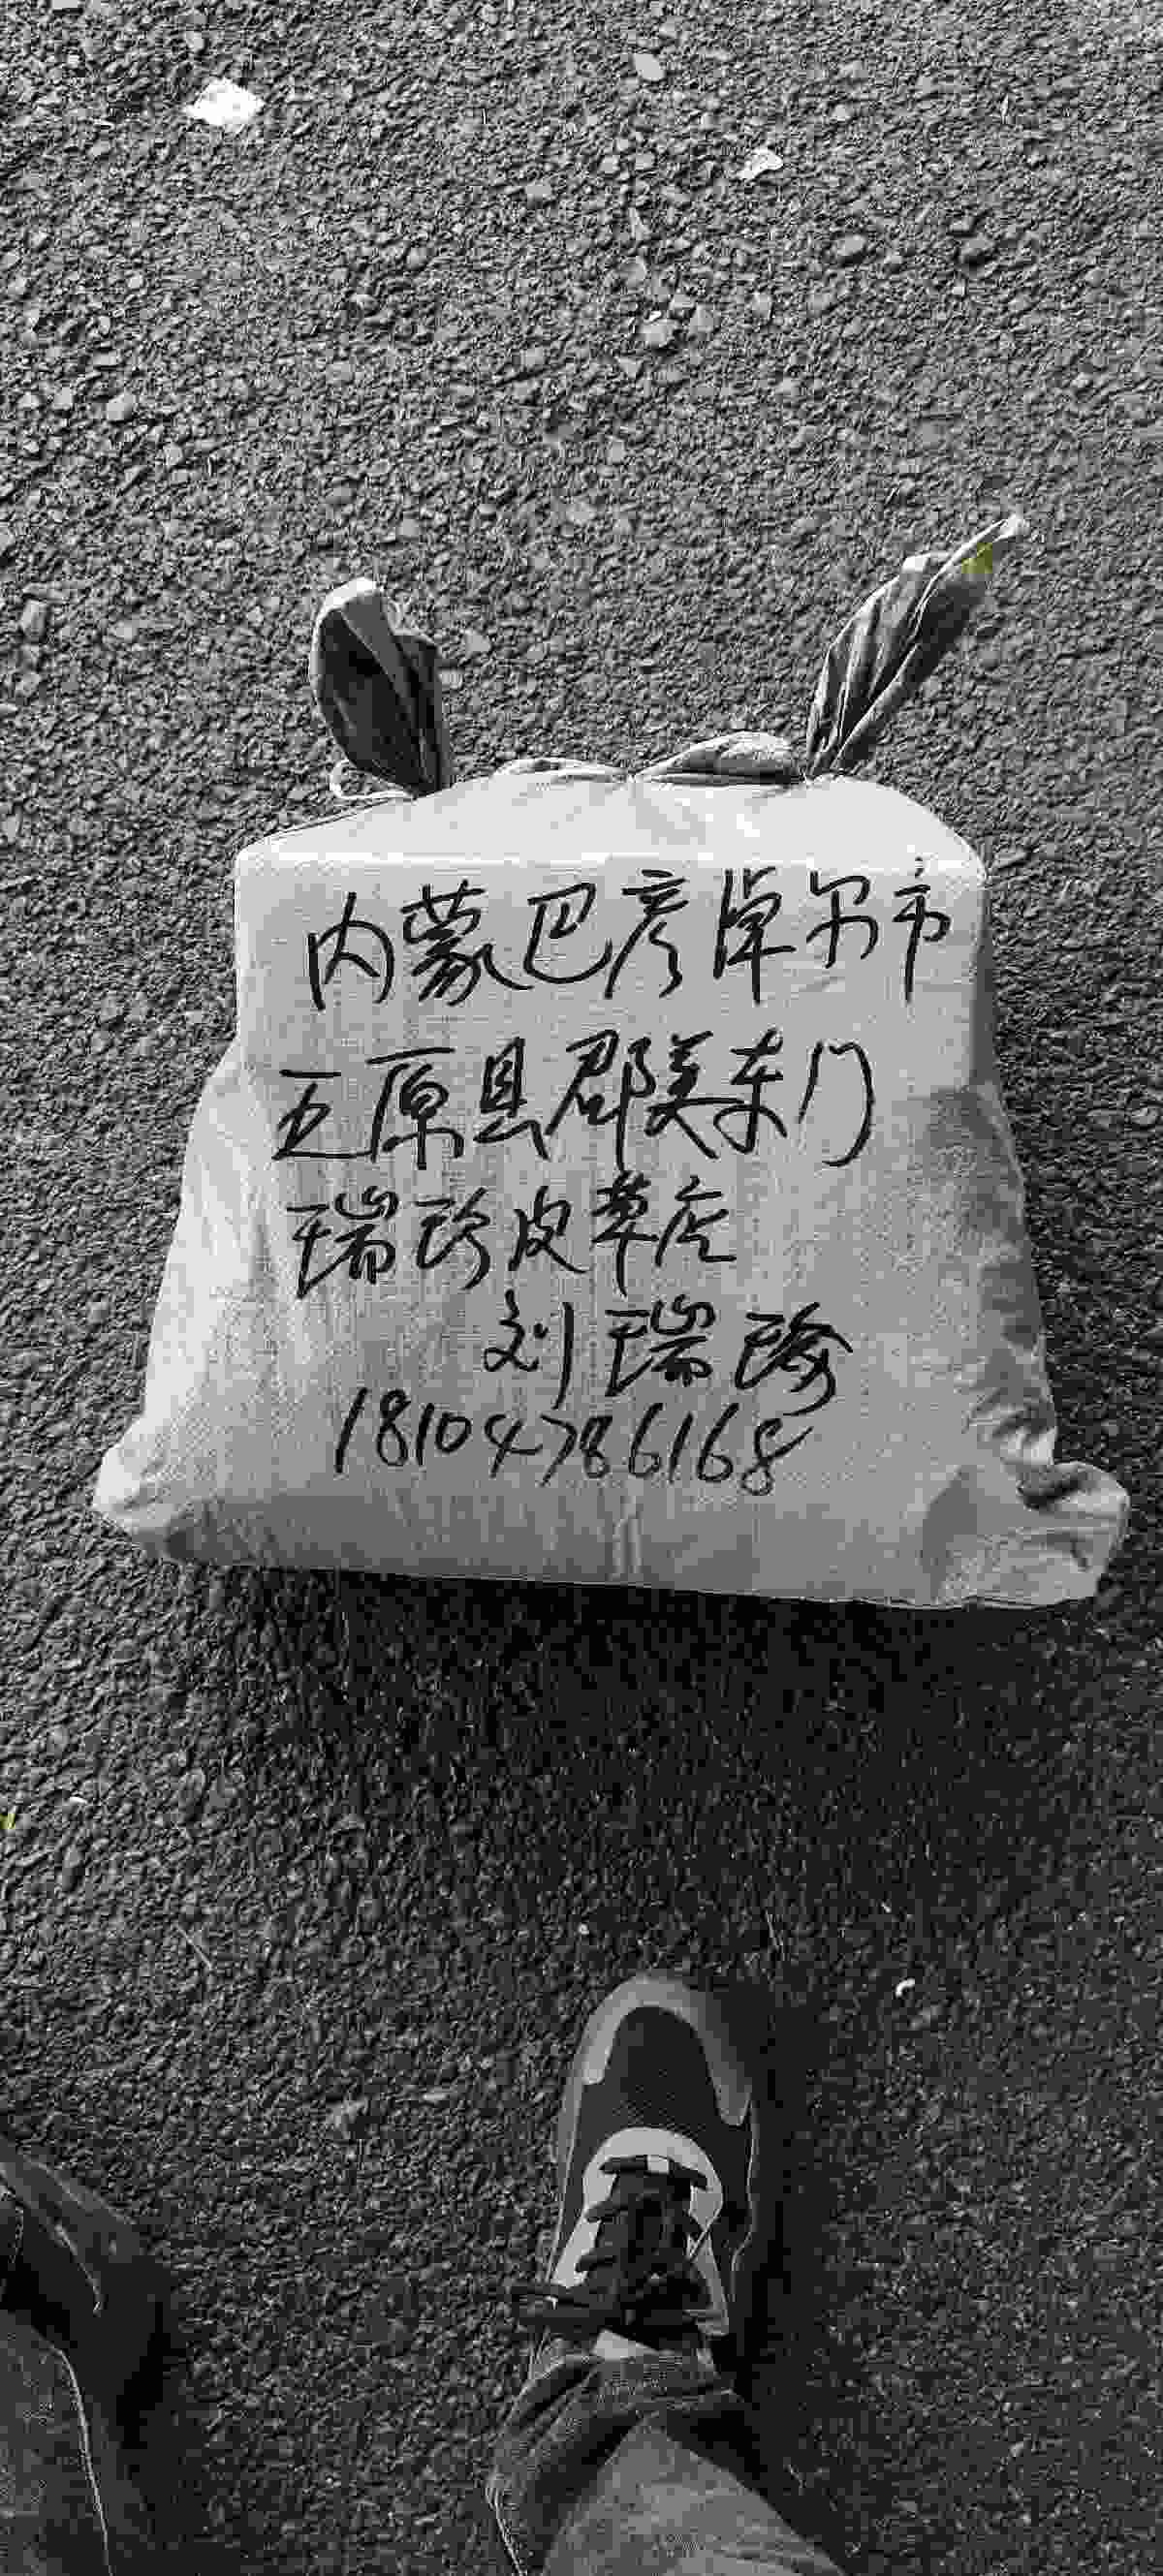 内蒙巴彦淖尔市
五原县郡美东门
瑞珍皮草店
刘瑞珍
18104786168